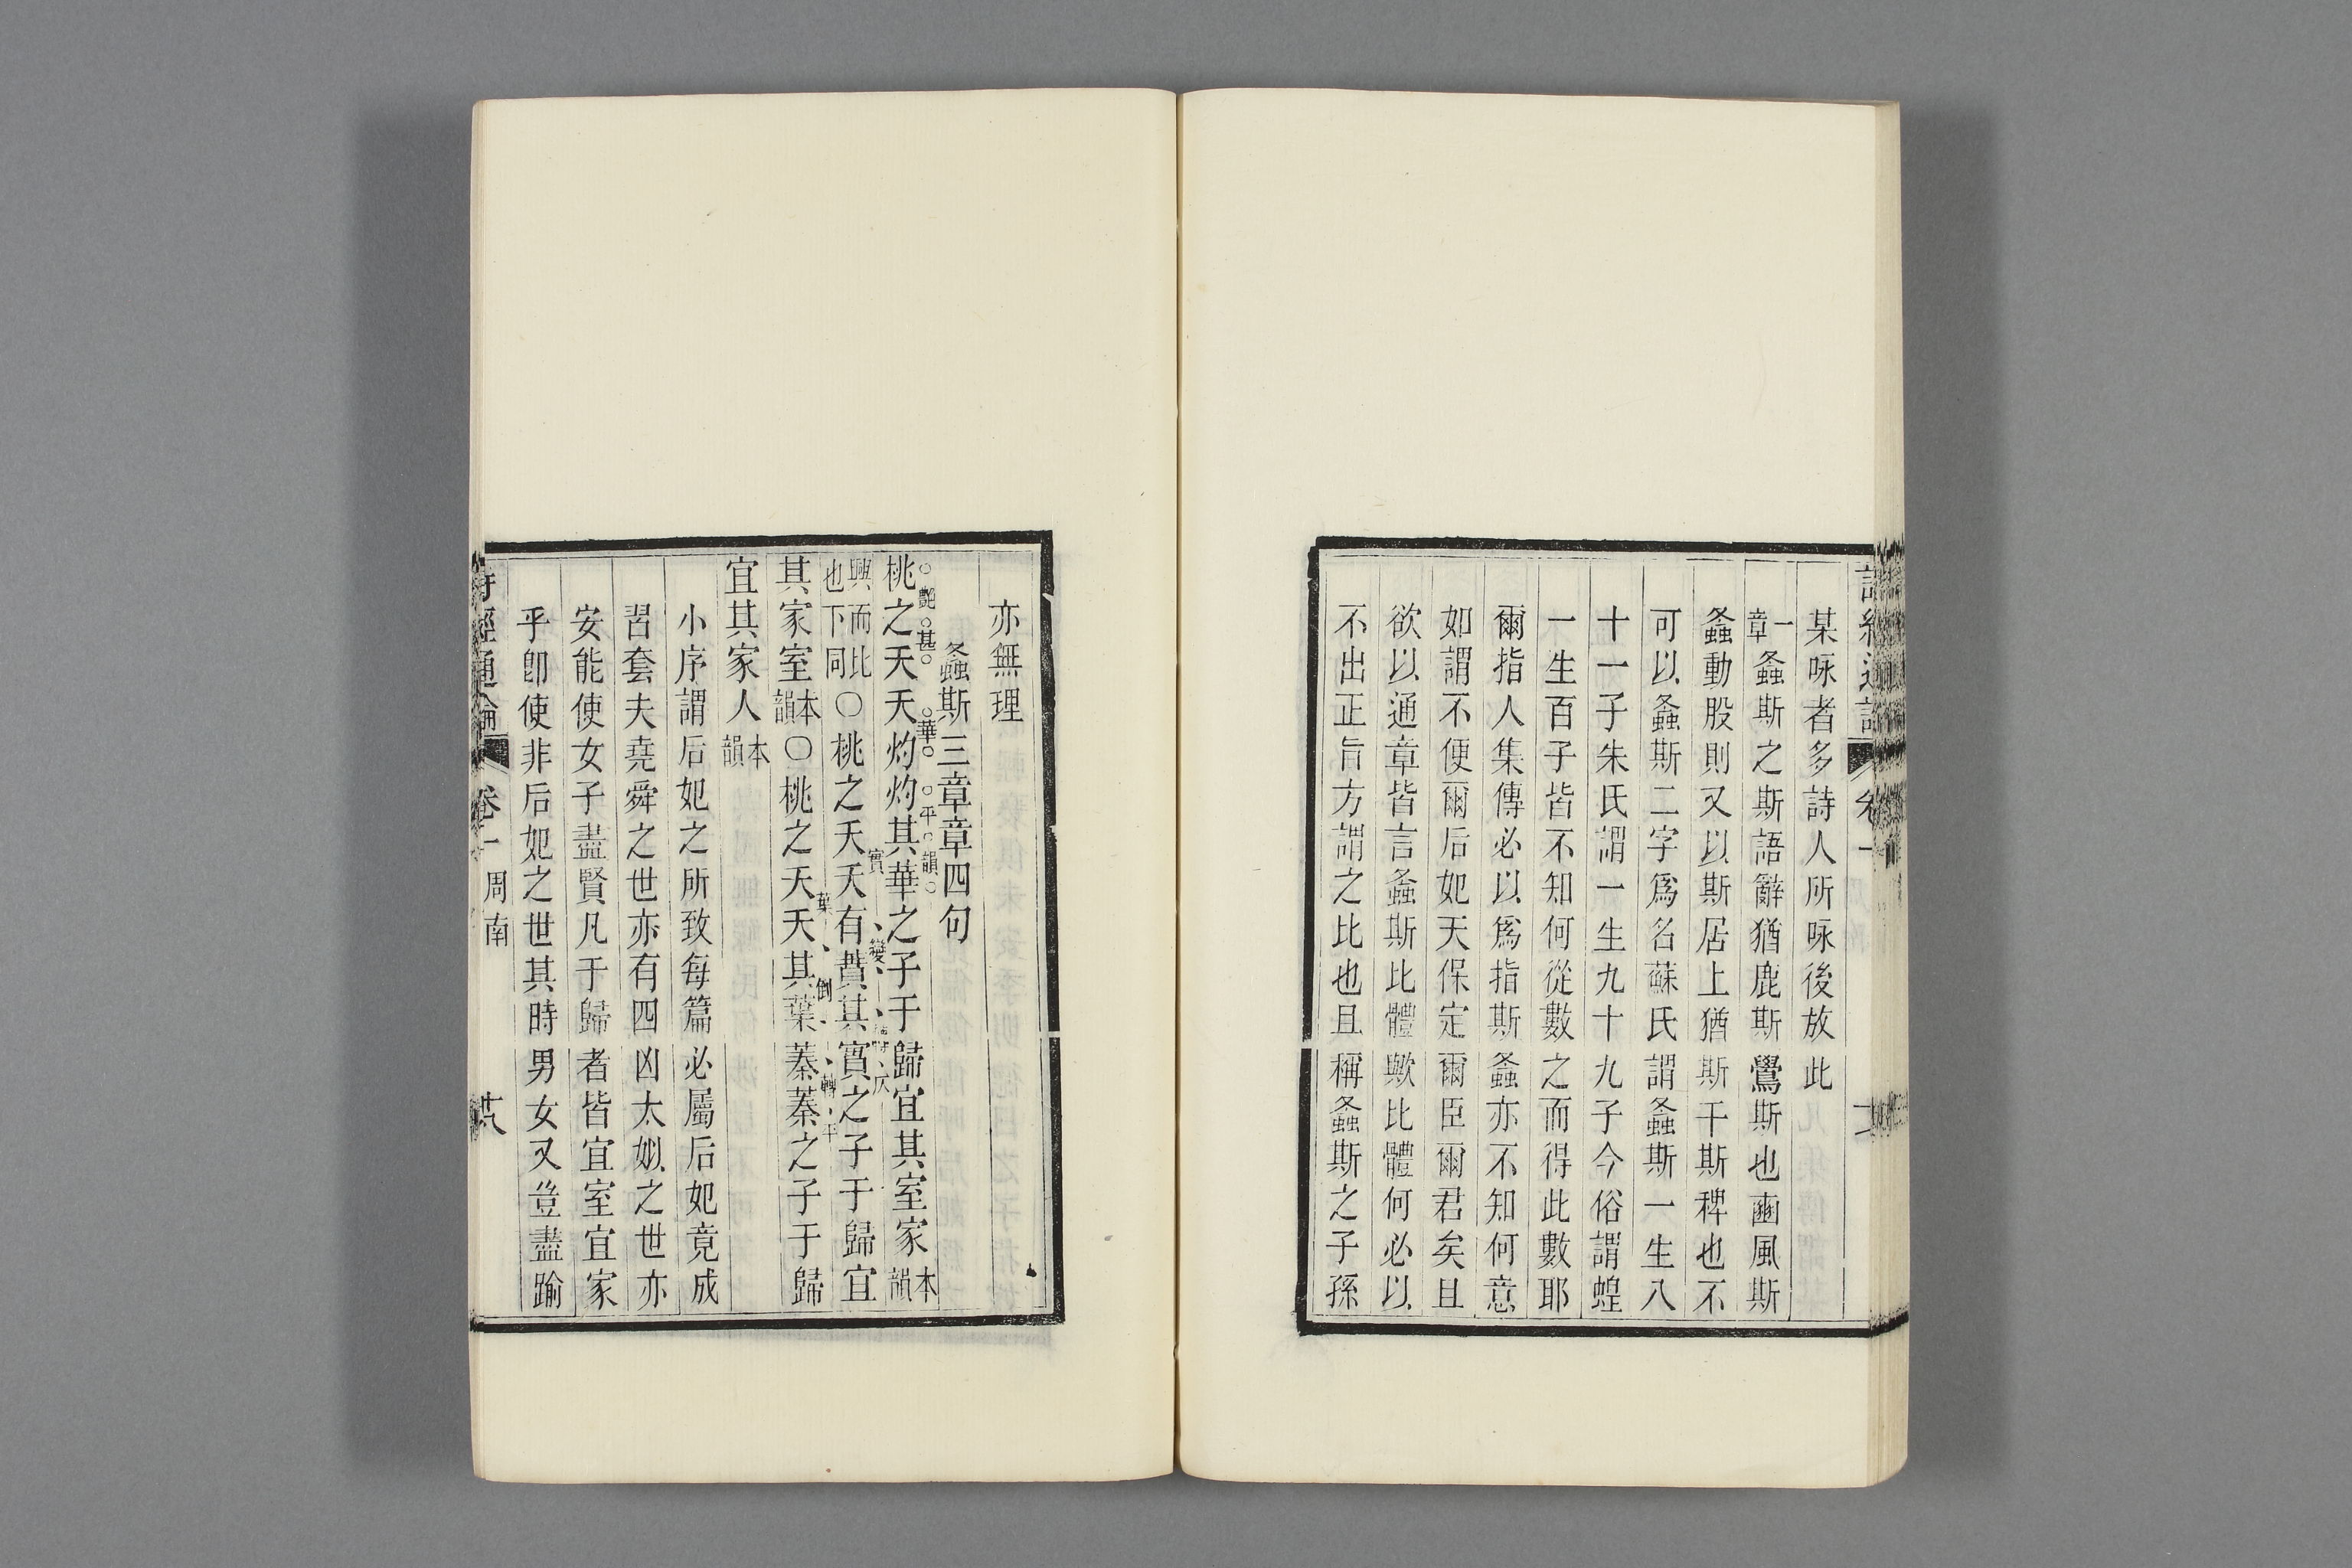 某咏者多詩人所咏後放此
一章螽斯之斯語辭猶鹿斯鶯斯也豳風斯
螽動股則又以斯居上猶斯干斯稗也不
可以螽斯二字爲名蘇氏謂螽斯一生八
十一子朱氏謂一生九十九子今俗謂蝗
一生百子皆不知何從數之而得此數耶
爾指人集傳必以爲指斯螽亦不知何意
如謂不便爾后妃天保定爾臣爾君矣且
欲以通章皆言螽斯比體歟比體何必以
不出正旨方謂之比也且稱螽斯之子孫
亦無理
螽斯三章章四句
桃之夭夭灼灼其華之子于歸宜其室家本韻
興而比也下同〇桃之夭夭有蕡其實之子于歸宜
其家室本韻〇桃之夭夭其葉蓁蓁之子于歸
宜其家人本韻
小序謂后妃之所致每篇必屬后妃竟成
習套夫堯舜之世亦有四凶太姒之世亦
安能使女子盡賢凡于歸者皆宜室宜家
乎卽使非后妃之世其時男女又豈盡踰
詩經通論 卷一 周南